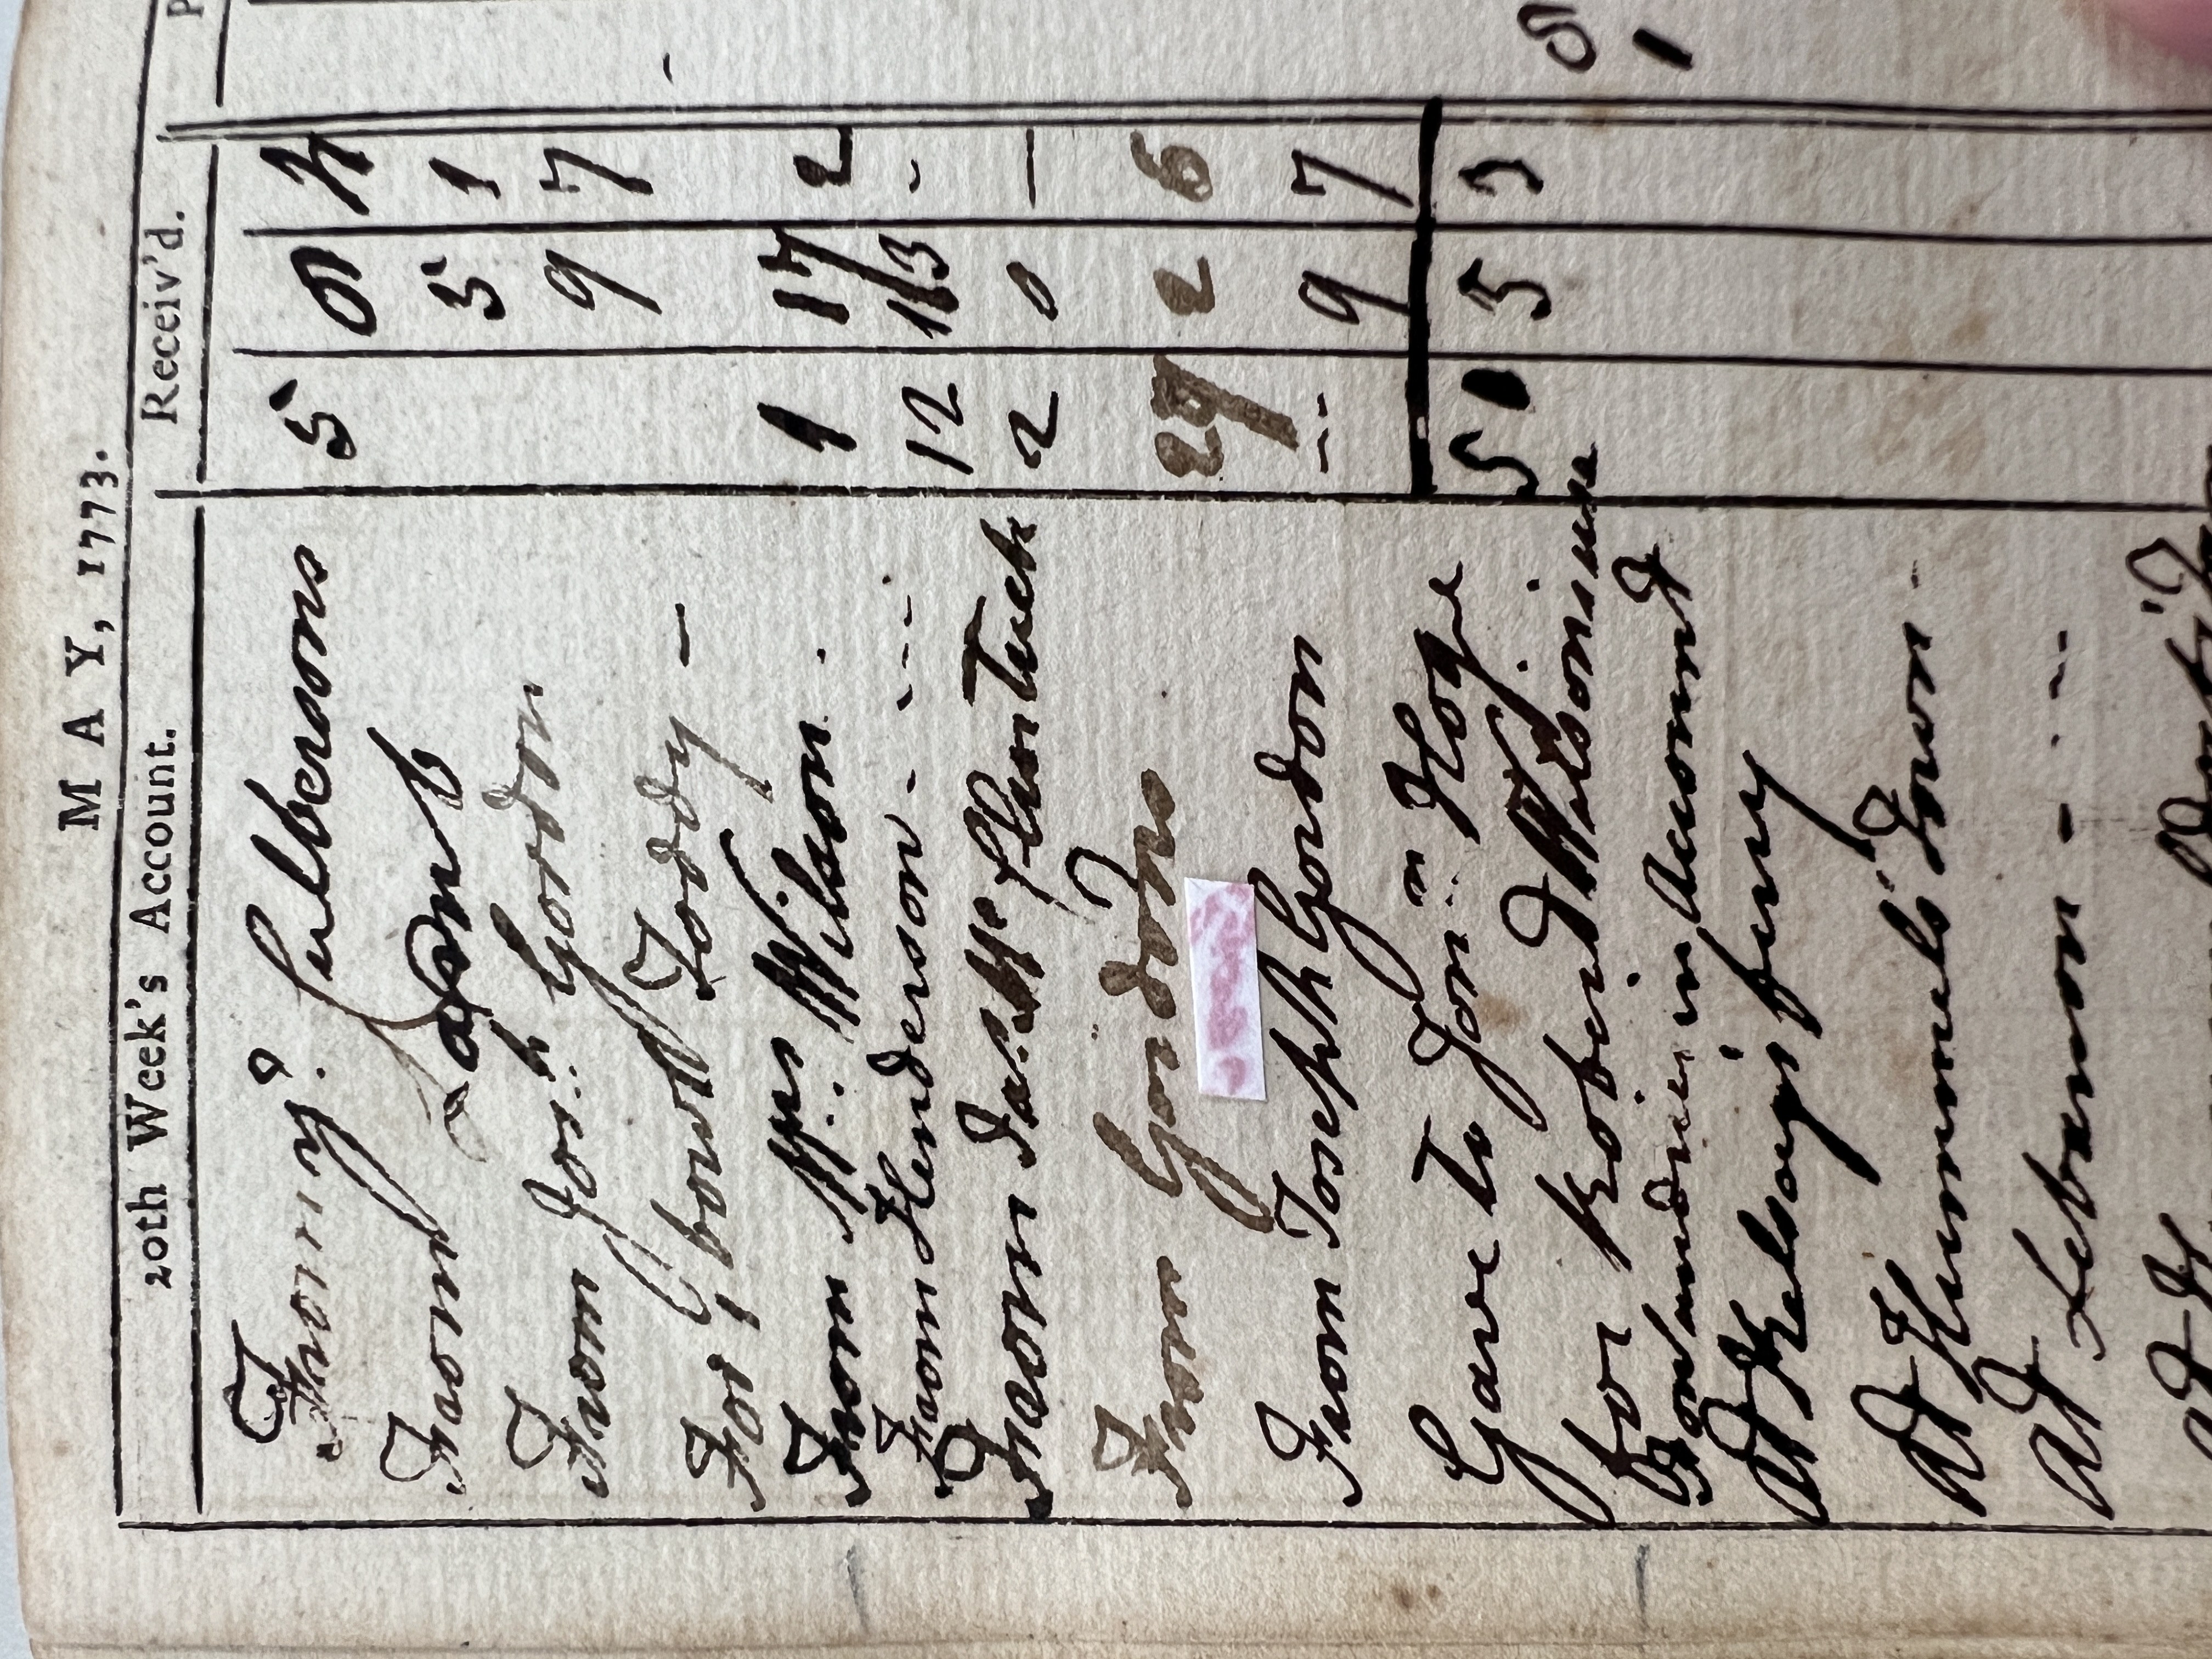 MAY, 1773.
20th Week's Account. Receiv'd. P
From ye. Culbersons 5 8 4
From Lamb 5 1
From Josh. Gordon 9 7
For 1 bowll Toddy —
From Mrs. Wilson . 1 17 2
From Henderson - --- 12 13 -
From Jas. Mc ClunTuck 2 0 —
From Gordons 29 2 6
From Joseph Gordon --- 9 7
Gave to Jonn. Hoge
51 5 3
for Robert Wilson's use 8
For sundries in Account 1
At Kelsay's ferry
At Hummels Town -
At Lebanon - ---
At